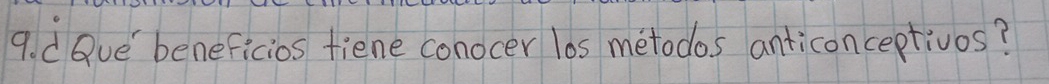 9.¿Qué beneficios tiene conocer los métodos anticonceptivos?